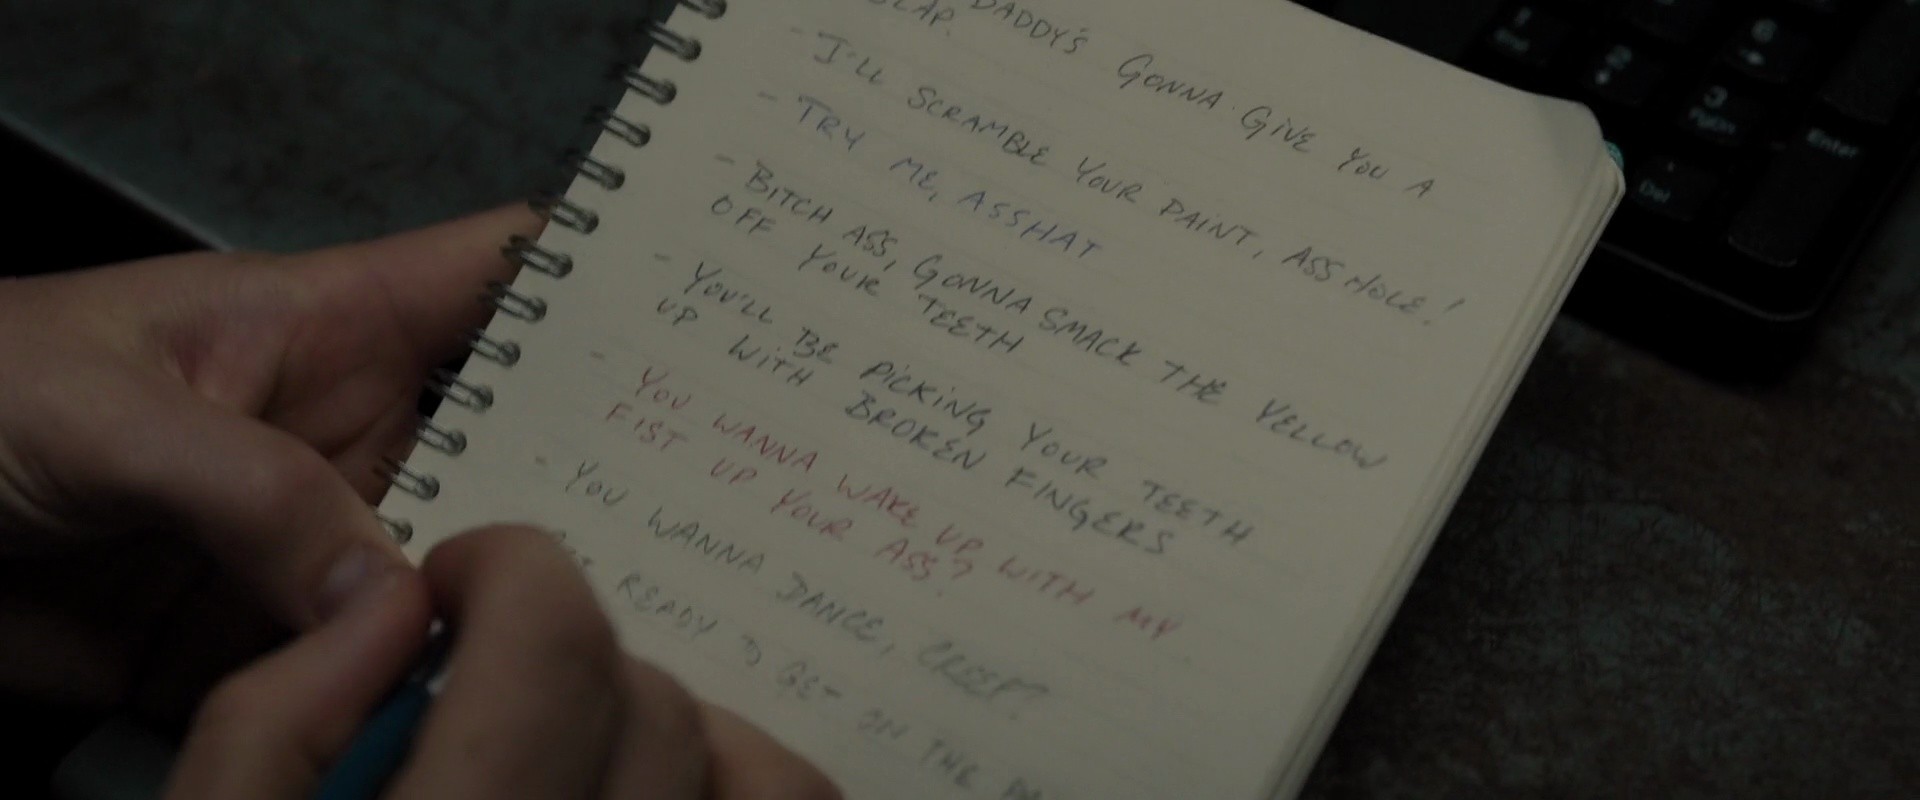 DADDY'S GONNA GIVE YOU A
SLAP.
- I'LL SCRAMBLE YOUR PAINT, ASSHOLE!
- TRY ME, ASSHAT
- BITCH ASS, GONNA SMACK THE YELLOW
OFF YOUR TEETH
- YOU'LL BE PICKING YOUR TEETH
UP WITH BROKEN FINGERS
- YOU WANNA WAKE UP WITH MY
FIST UP YOUR ASS?
- YOU WANNA DANCE, CREEP?
READY TO GET ON THE
1
End
2
3
PgDn
6
Enter
Del